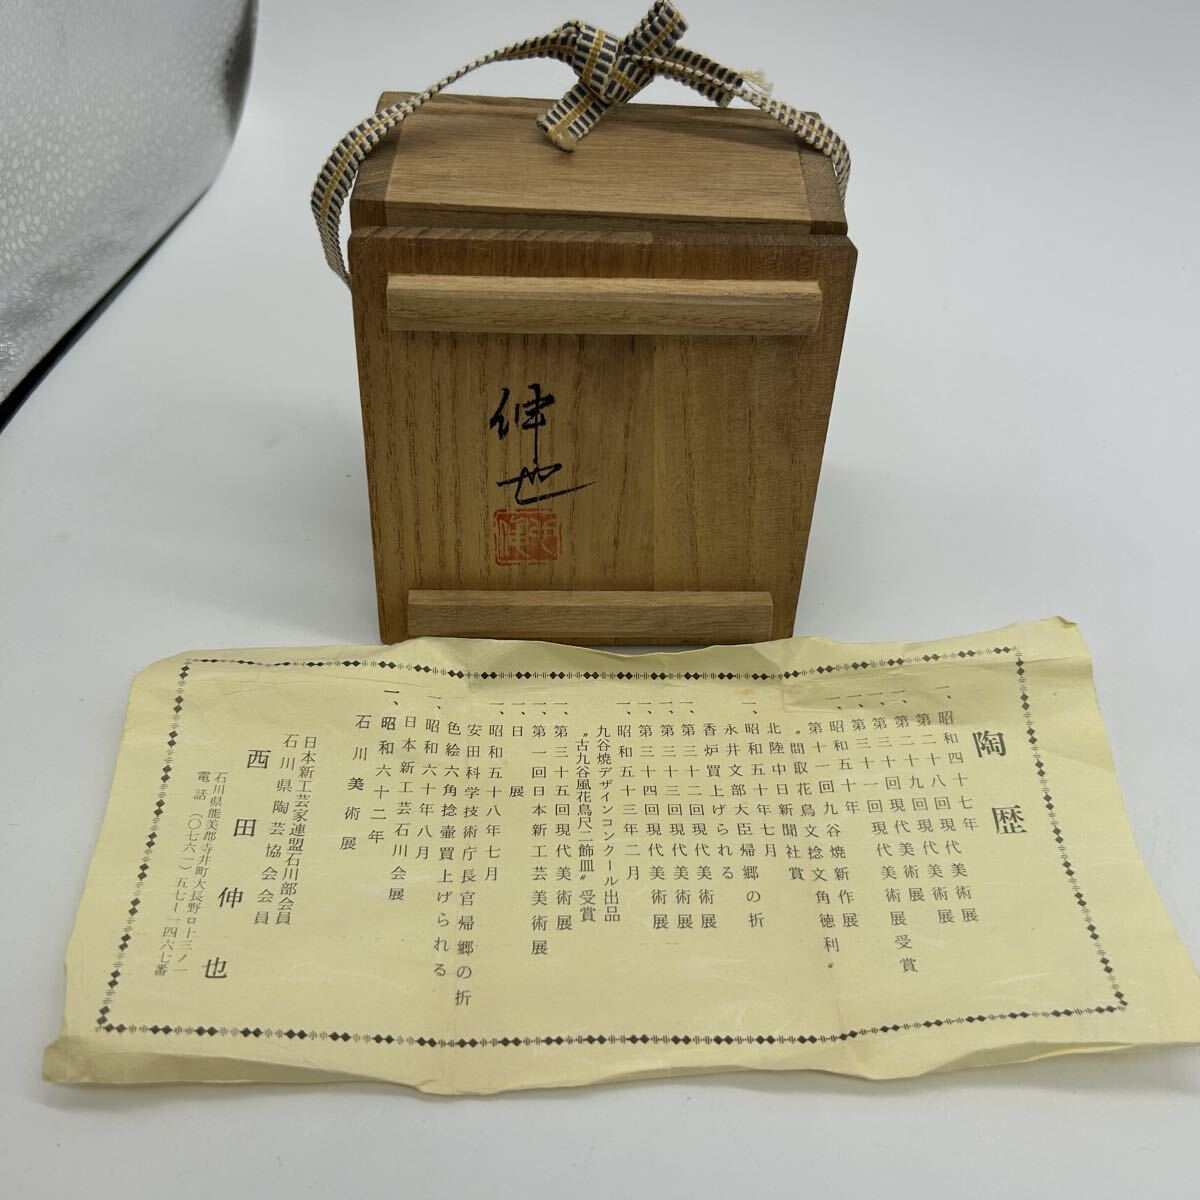 伸也
陶歴
一、昭和四十七年
第二十八回現代美術展
一、第二十九回現代美術展
一、第三十回現代美術展
一、第三十一回現代美術展受賞
一、昭和五十年
第十一回九谷焼新作展
〝間取花鳥文捻文角徳利〟
北陸中日新聞社賞
一、昭和五十年七月
永井文部大臣帰郷の折
香炉買上げられる
一、第三十二回現代美術展
一、第三十三回現代美術展
一、第三十四回現代美術展
一、昭和五十三年二月
九谷焼デザインコンクール出品
〝古九谷風花鳥尺二飾皿〟受賞
一、第三十五回現代美術展
一、第一回日本新工芸美術展
一、日展
一、昭和五十八年七月
安田科学技術庁長官帰郷の折
色絵六角捻壷買上げられる
一、昭和六十年八月
日本新工芸石川会展
一、昭和六十二年
石川美術展
日本新工芸家連盟石川部会員
石川県陶芸協会会員
西田伸也
石川県能美郡寺井町大長野ロ十三ノ一
電話(〇七六一)五七ー一四六七番